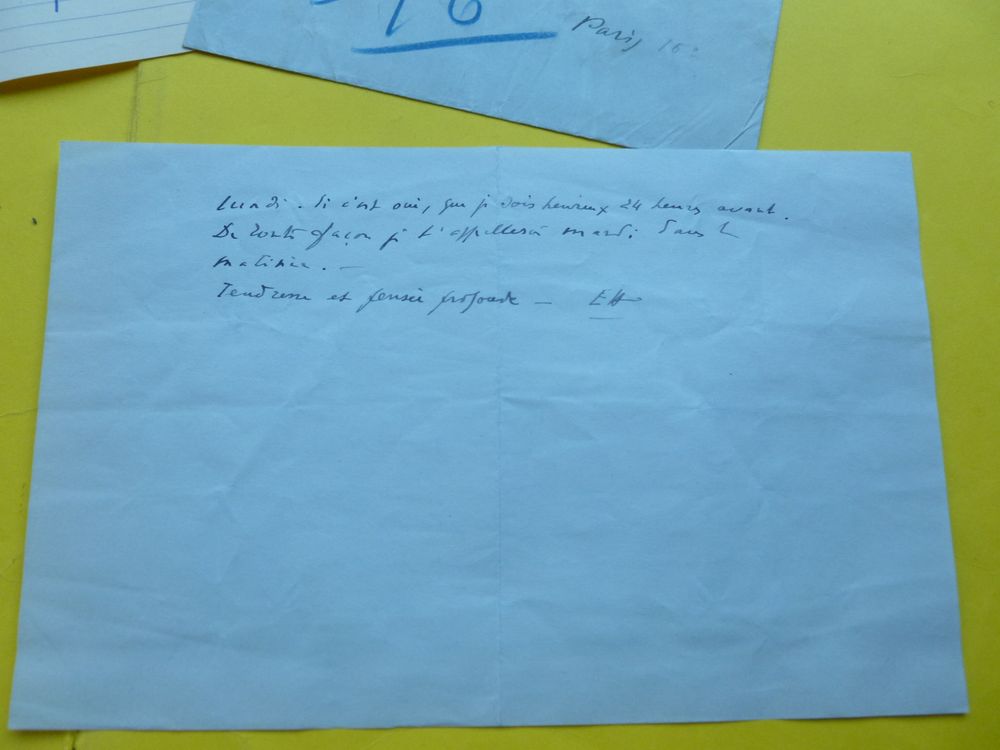 16
Paris 16e
lundi. Si c'est oui, que je sois heureux 24 heures avant.
De toute façon je t'appellerai mardi dans la
matinée. —
Tendresse et pensée profonde —